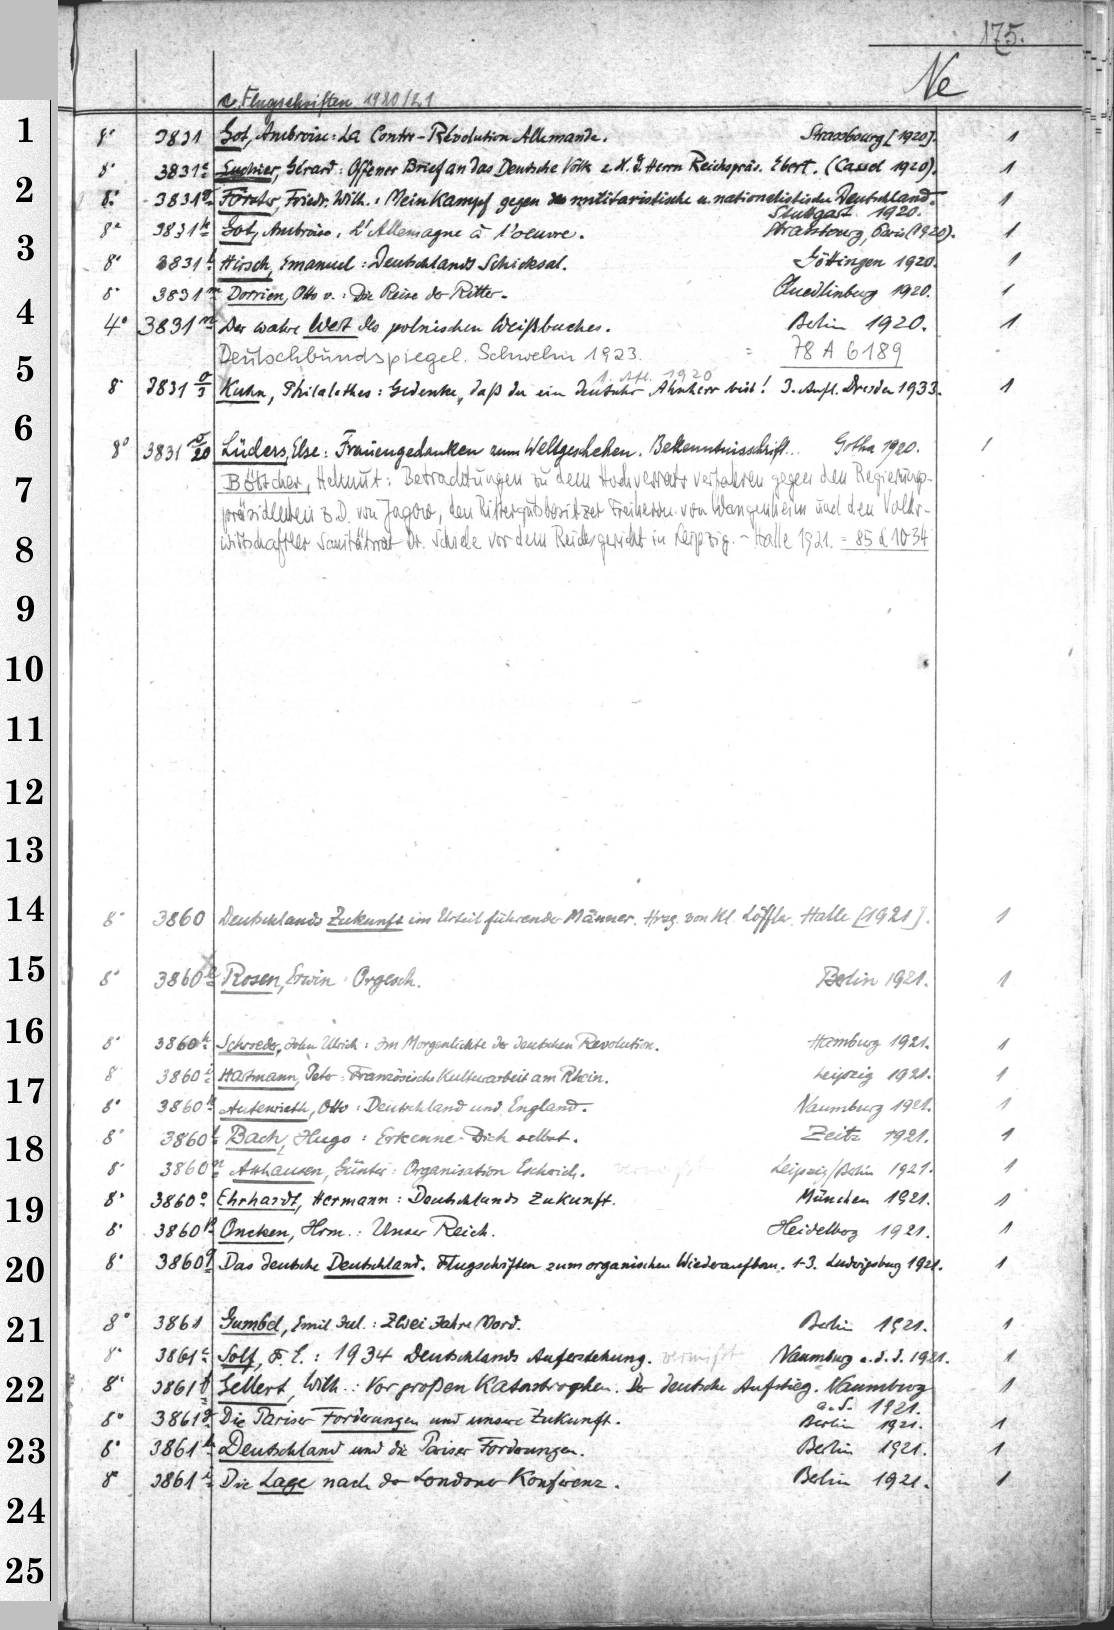 175.
Ne
c. Flugschriften 1920/21
1
8° 3831 Got, Ambroise: La Contre-Révolution Allemande. Strassbourg [1920]. 1
8° 3831e Suchier, Gérard: Offener Brief an das Deutsche Volk z. H. d. Herrn Reichspräs. Ebert. (Cassel 1920). 1
2
8° 3831g Förster, Friedr. Wilh.: Mein Kampf gegen das militaristische u. nationalistische Deutschland. 1
Stuttgart 1920.
8° 3831k Got, Ambroise, L'Allemagne à l'oeuvre. Strasbourg, Paris (1920). 1
3
8° 3831l Hirsch, Emanuel: Deutschlands Schicksal. Göttingen 1920. 1
8° 3831m Dorrien, Otto v.: Die Reise der Ritter. Quedlinburg 1920. 1
4
4° 3831n Der wahre Wert des polnischen Weißbuches. Berlin 1920. 1
Deutschbundspiegel. Schwelm 1923. = 78 A 6189
5
1. Afl. 1920
8° 3831 o/3 Kuhn, Philalethes: Gedenke, daß du ein deutscher Ahnherr bist! 3. Aufl. Dresden 1933. 1
6
8° 3831 o/20 Lüders, Else: Frauengedanken zum Weltgeschehen. Bekenntnisschrift. Gotha 1920. 1
7
Böttcher, Helmut: Betrachtungen zu dem Hochverratsverfahren gegen den Regierungs-
präsidenten z.D. von Jagow, den Rittergutsbesitzer Freiherrn von Wangenheim und den Volks-
8
wirtschaftler Sanitätsrat Dr. Schiele vor dem Reichsgericht in Leipzig. - Halle 1921. = 85 A 1034
9
10
11
12
13
14
8° 3860 Deutschlands Zukunft im Urteil führender Männer. Hrsg. von Kl. Löffler. Halle [1921]. 1
15
8° 3860 Rosen, Erwin: Orgesch. Berlin 1921. 1
16
8° 3860h Schroeder, John Ulrich: Im Morgenlichte der deutschen Revolution. Hamburg 1921. 1
8° 3860i Hartmann, Peter: Französische Kulturarbeit am Rhein. Leipzig 1921. 1
17
8° 3860k Autenrieth, Otto: Deutschland und England. Naumburg 1921. 1
18
8° 3860l Bach, Hugo: Erkenne Dich selbst. Zeitz 1921. 1
8° 3860n Axhausen, Günter: Organisation Escherich. vermißt Leipzig/Berlin 1921. 1
19
8° 3860o Ehrhardt, Hermann: Deutschlands Zukunft. München 1921. 1
8° 3860p Oncken, Hrm.: Unser Reich. Heidelberg 1921. 1
20
8° 3860q Das deutsche Deutschland. Flugschriften zum organischen Wiederaufbau. 1-3. Ludwigsburg 1921. 1
21
8° 3861 Gumbel, Emil Jul.: Zwei Jahre Mord. Berlin 1921. 1
8° 3861c Solf, F. E.: 1934 Deutschlands Auferstehung. vermißt Naumburg a.d.S. 1921. 1
22
8° 3861f Gellert, Wilh.: Vor großen Katastrophen. Der deutsche Aufstieg. Naumburg 1
a.S. 1921.
8° 3861g Die Pariser Forderungen und unsere Zukunft. Berlin 1921. 1
23
8° 3861h Deutschland und die Pariser Forderungen. Berlin 1921. 1
8° 3861i Die Lage nach der Londoner Konferenz. Berlin 1921. 1
24
25